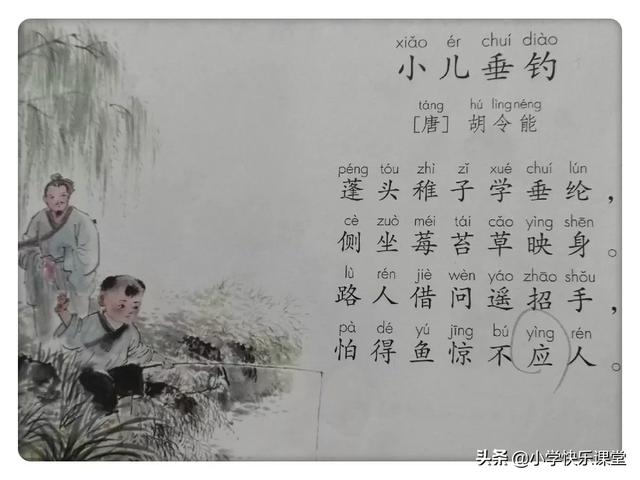 xiǎo ér chuí diào
小儿垂钓
táng hú lìng néng
[唐] 胡令能
péng tóu zhì zǐ xué chuí lún
蓬头稚子学垂纶，
cè zuò méi tái cǎo yìng shēn
侧坐莓苔草映身。
lù rén jiè wèn yáo zhāo shǒu
路人借问遥招手，
pà dé yú jīng bú yìng rén
怕得鱼惊不应人。
头条 @小学快乐课堂